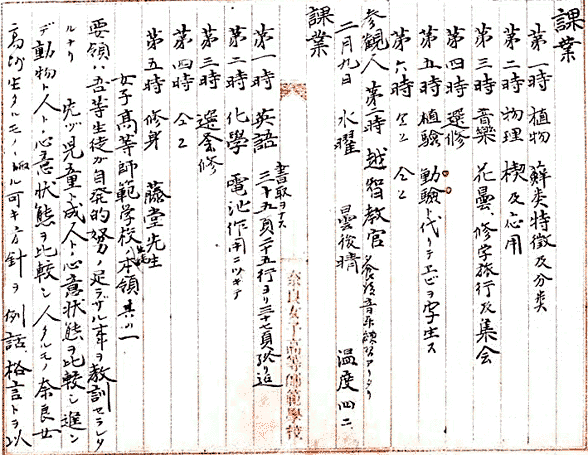 課業
第一時 植物 蘚類特徴及分類
第二時 物理 楔及応用
第三時 音樂 花曇、修学旅行及集会
第四時 選修
第五時 植験 動験ト代リテ上心ヲ写生ス
第六時 仝上 仝上
参観人 第二時 越智教官 食後音楽練習アリタリ
二月九日 水曜 曇後晴 温度四二
課業
第一時 英語 書取ヲナス 三十九頁二十五行ヨリ三十七頁終リ迄
第二時 化學 電池作用ニツキテ
第三時 選修
第四時 仝上
第五時 修身 藤堂先生
女子高等師範学校ノ本領其ノ一
要領、吾等生徒ガ自発的努ノ足ラザル事ヲ教訓セラレタ
ルナリ 先ヅ児童ト成人ト心意状態ヲ比較シ進ン
デ動物ト人ト心意状態ヲ比較シ人タルモノ奈良女
高師生タルモノノ取ル可キ方針ヲ例話格言トヲ以
奈良女子高等師範學校